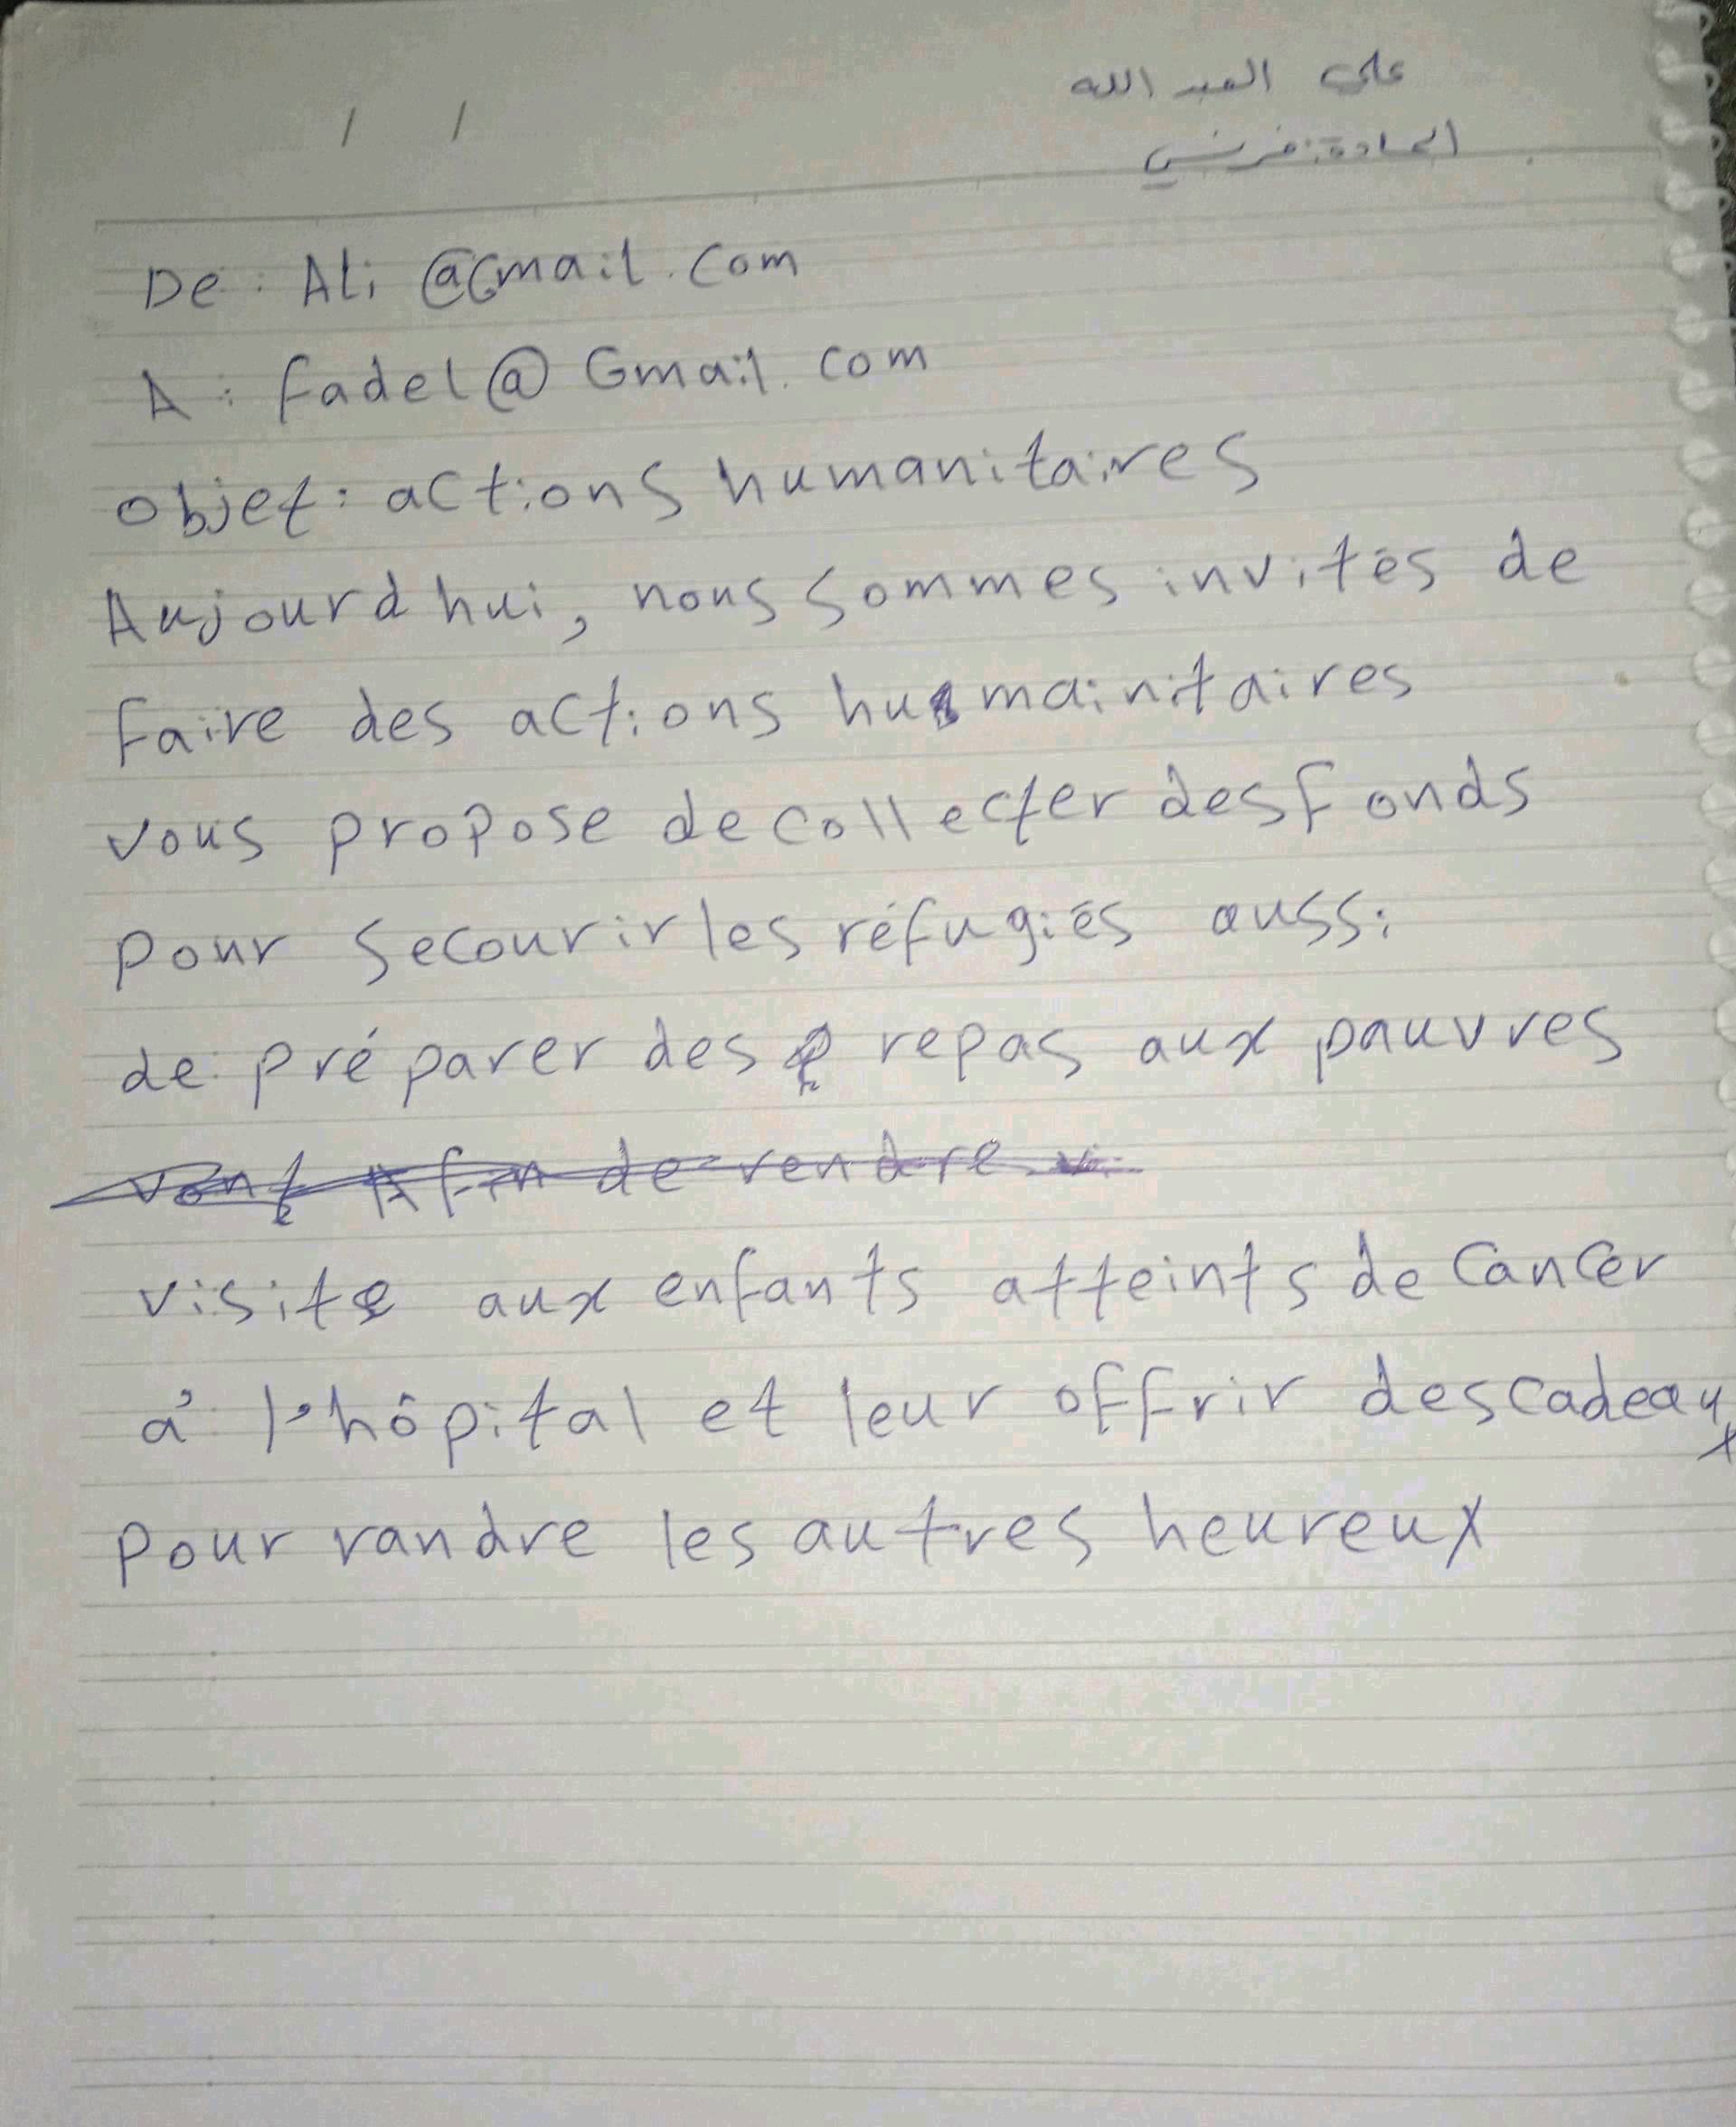 علي العبد الله
المادة: فرنسي
/ /
De : Ali @Gmail.com
A : fadel@Gmail.com
objet : actions humanitaires
Aujourd hui, nous sommes invités de
faire des actions humainitaires
vous propose de collecter des fonds
pour secourir les réfugiés aussi
de préparer des repas aux pauvres
vont Afin de rendre vi
visite aux enfants atteints de cancer
à l'hôpital et leur offrir des cadeaux
pour randre les autres heureux